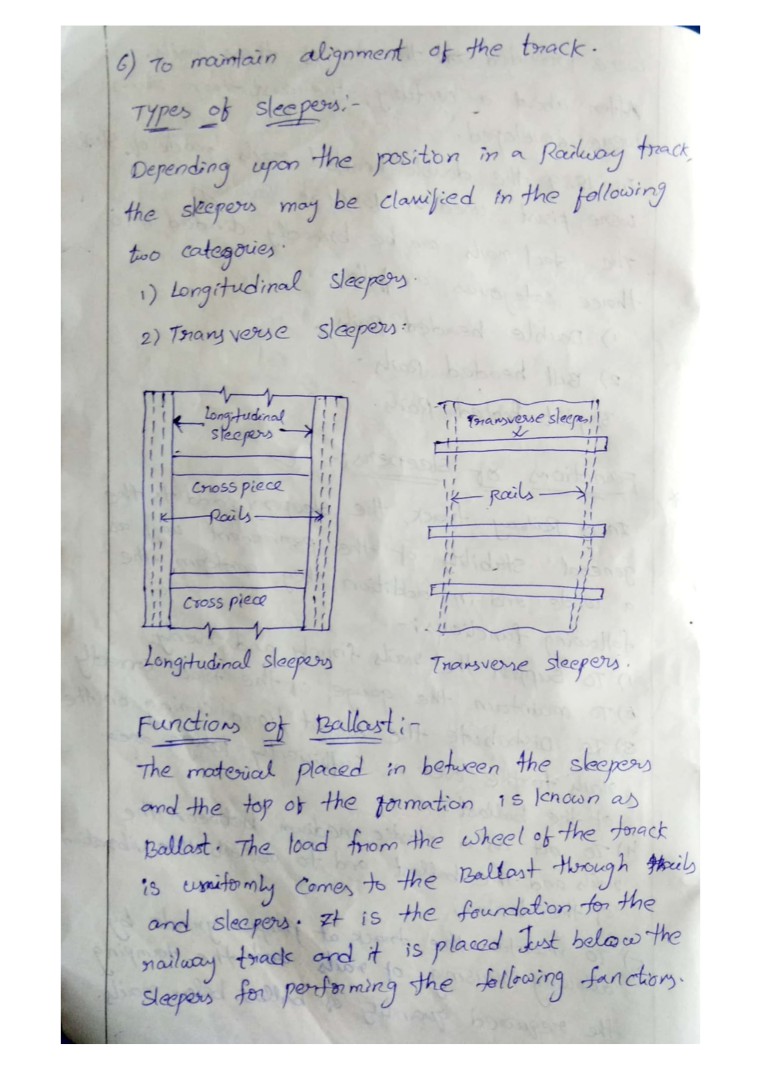 6) To maintain alignment of the track.
Types of Sleepers:-
Depending upon the position in a Railway track,
the sleepers may be classified in the following
two categories.
1) Longitudinal Sleepers.
2) Transverse Sleepers:
Longitudinal
Sleepers
Cross piece
Rails
Cross piece
Longitudinal Sleepers
Transverse sleeper
Rails
Transverse sleepers.
Functions of Ballast:-
The material placed in between the sleepers
and the top of the formation is known as
Ballast. The load from the wheel of the track
is uniformly comes to the Ballast through rails
and sleepers. It is the foundation for the
railway track and it is placed Just below the
Sleepers for performing the following fanctions.